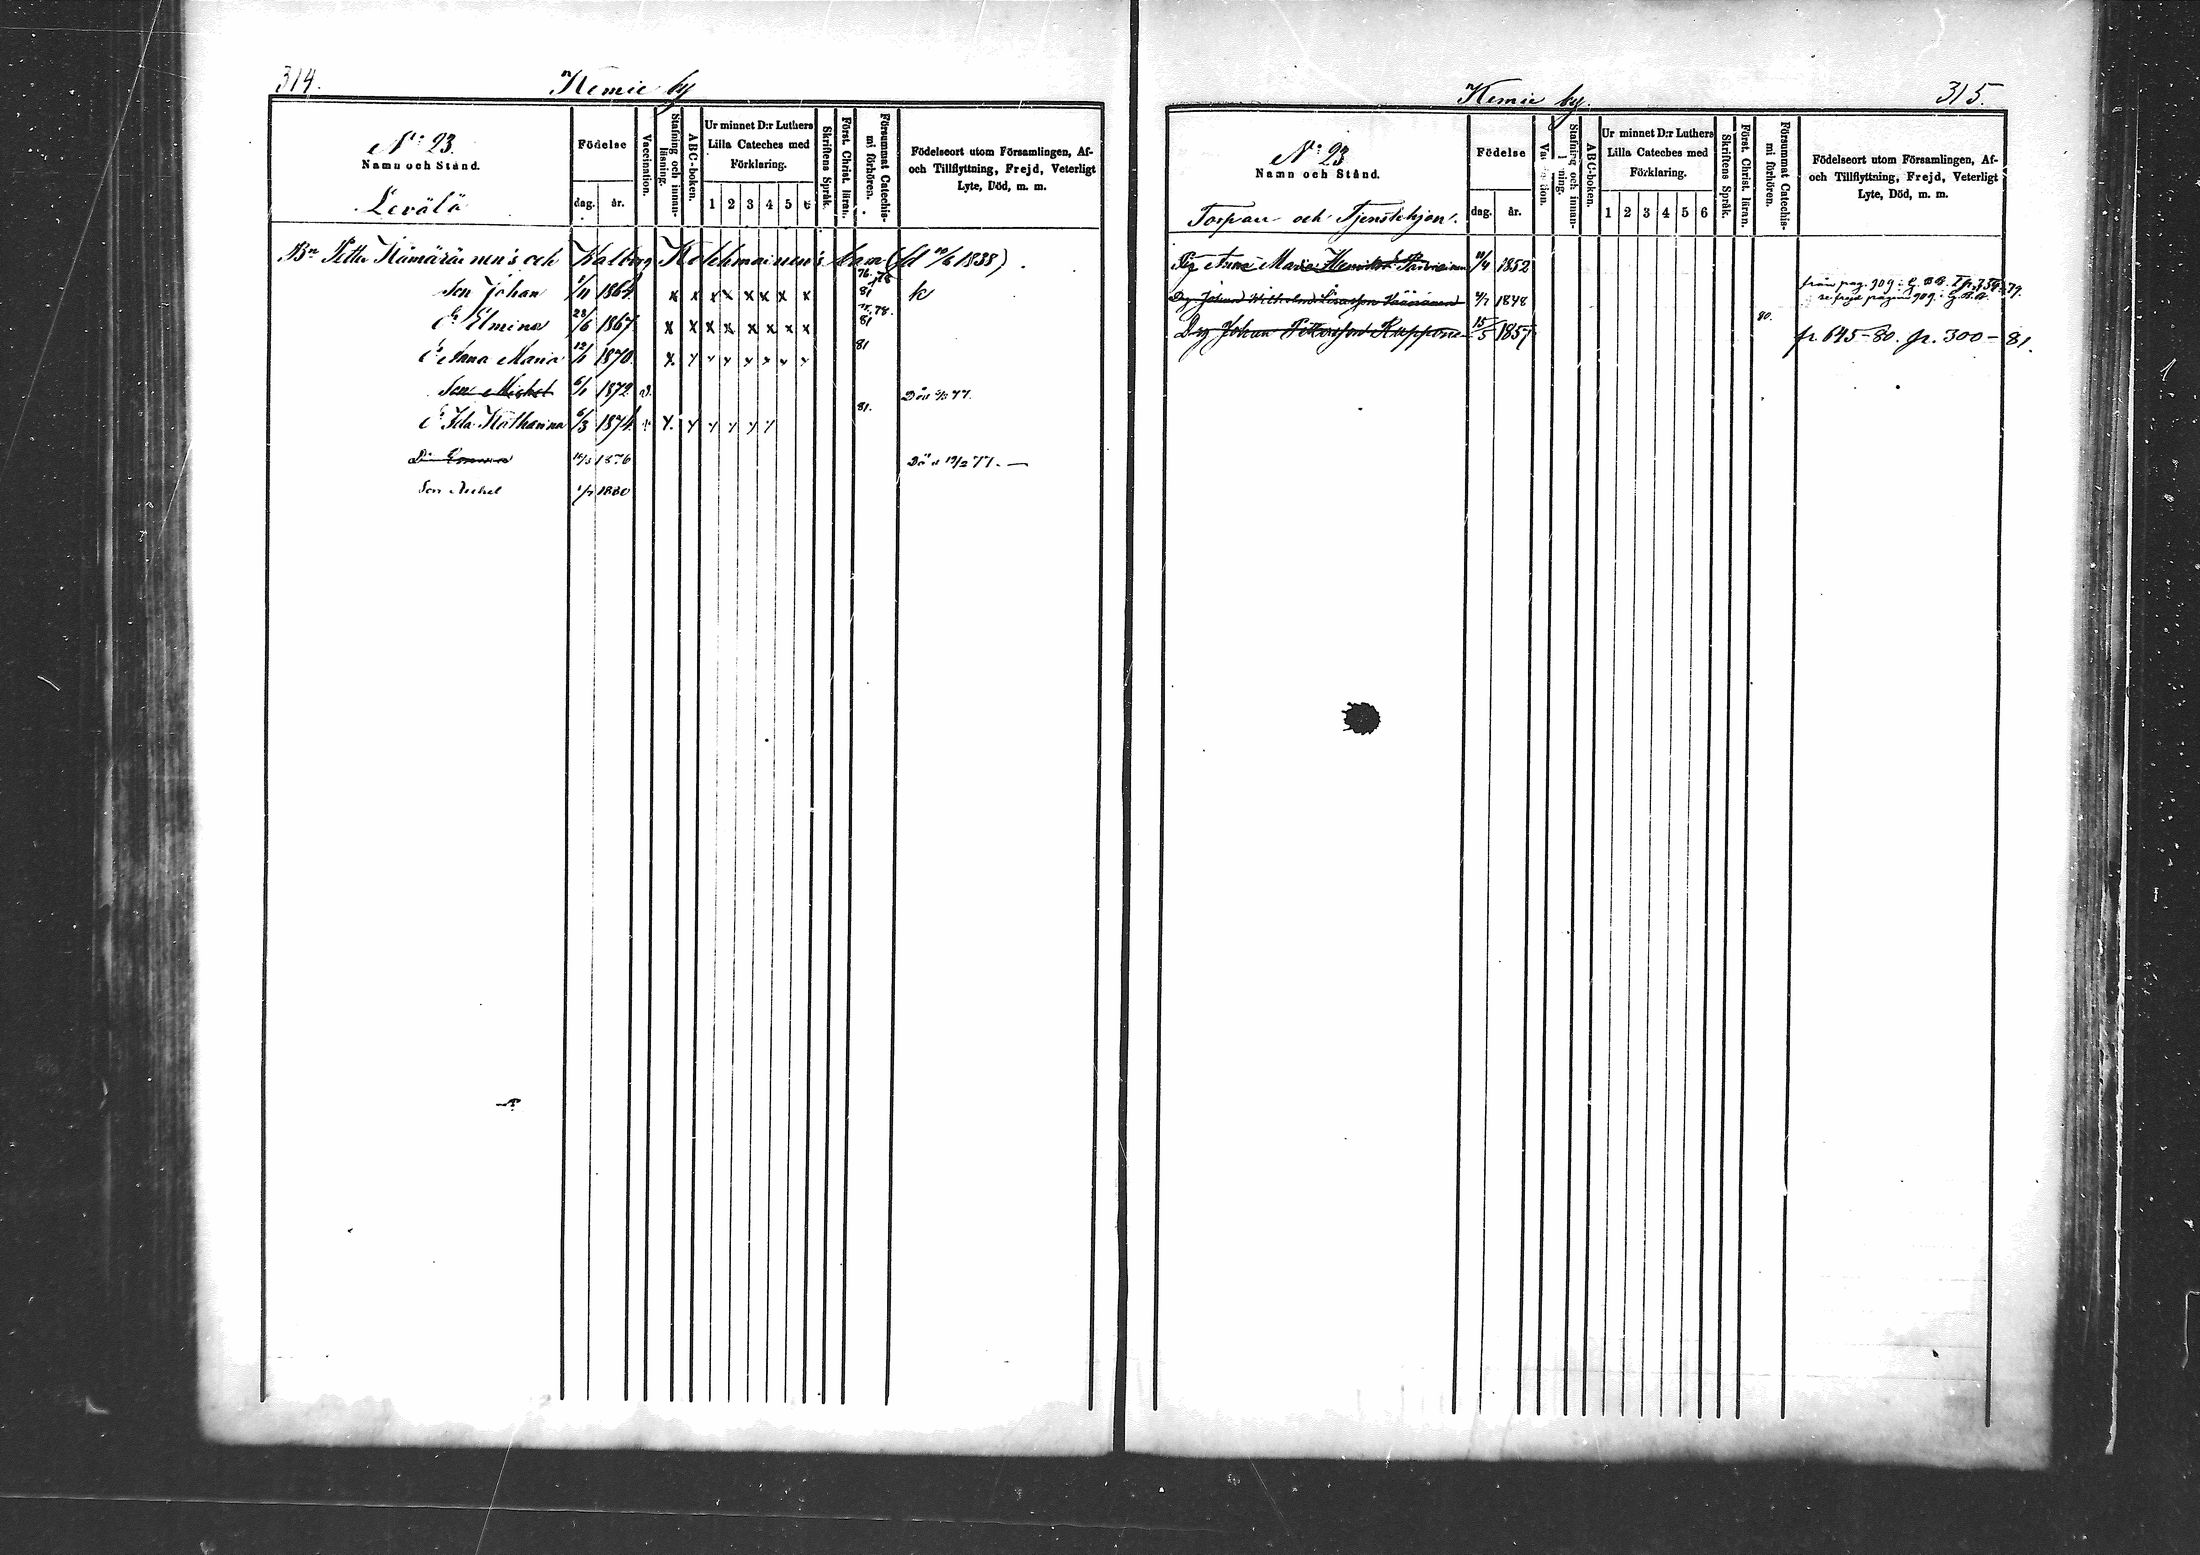 314.
Kemie by
No 23.
Namn och Stånd.
Leválä
Födelse
dag. år.
Vaccination.
Stafning och innanläsning.
ABC-boken.
Ur minnet D:r Luthers Lilla Cateches med Förklaring.
1 2 3 4 5 6
Skriftens Språk.
Först. Christ. läran.
Försummat Catechismi förhören.
Födelseort utom Församlingen, Af- och Tillflyttning, Frejd, Veterligt Lyte, Död, m. m.
Bn Petter Kämäräinen's och Kolehmainen's barn 1838)
Son Johan 1/11 1864 x x x x x x x x 76. 78 81 k
Elmina 28/6 1867 x x x x x x x x 78. 81
Anna Maria 12/1 1870 x 81
Son Mickel 6/1 1872 Död 77.
Ida Katharina 6/3 1874 x 81.
1876 Död 77.
Son Mickel 1/7 1880
Kemie by.
315.
No 23
Namn och Stånd.
Torpare och Tjenstehjon.
Födelse
dag. år.
Vaccination.
Stafning och innanläsning.
ABC-boken.
Ur minnet D:r Luthers Lilla Cateches med Förklaring.
1 2 3 4 5 6
Skriftens Språk.
Först. Christ. läran.
Försummat Catechismi förhören.
Födelseort utom Församlingen, Af- och Tillflyttning, Frejd, Veterligt Lyte, Död, m. m.
Pig Anna Maria 1852
Drg Johan Wilhelm 1848 från pag. 909
se frejd pagina 909
Drg Johan Pettersson Kuppone 15/5 1857 80. fr. 645-80. fr. 300-81.